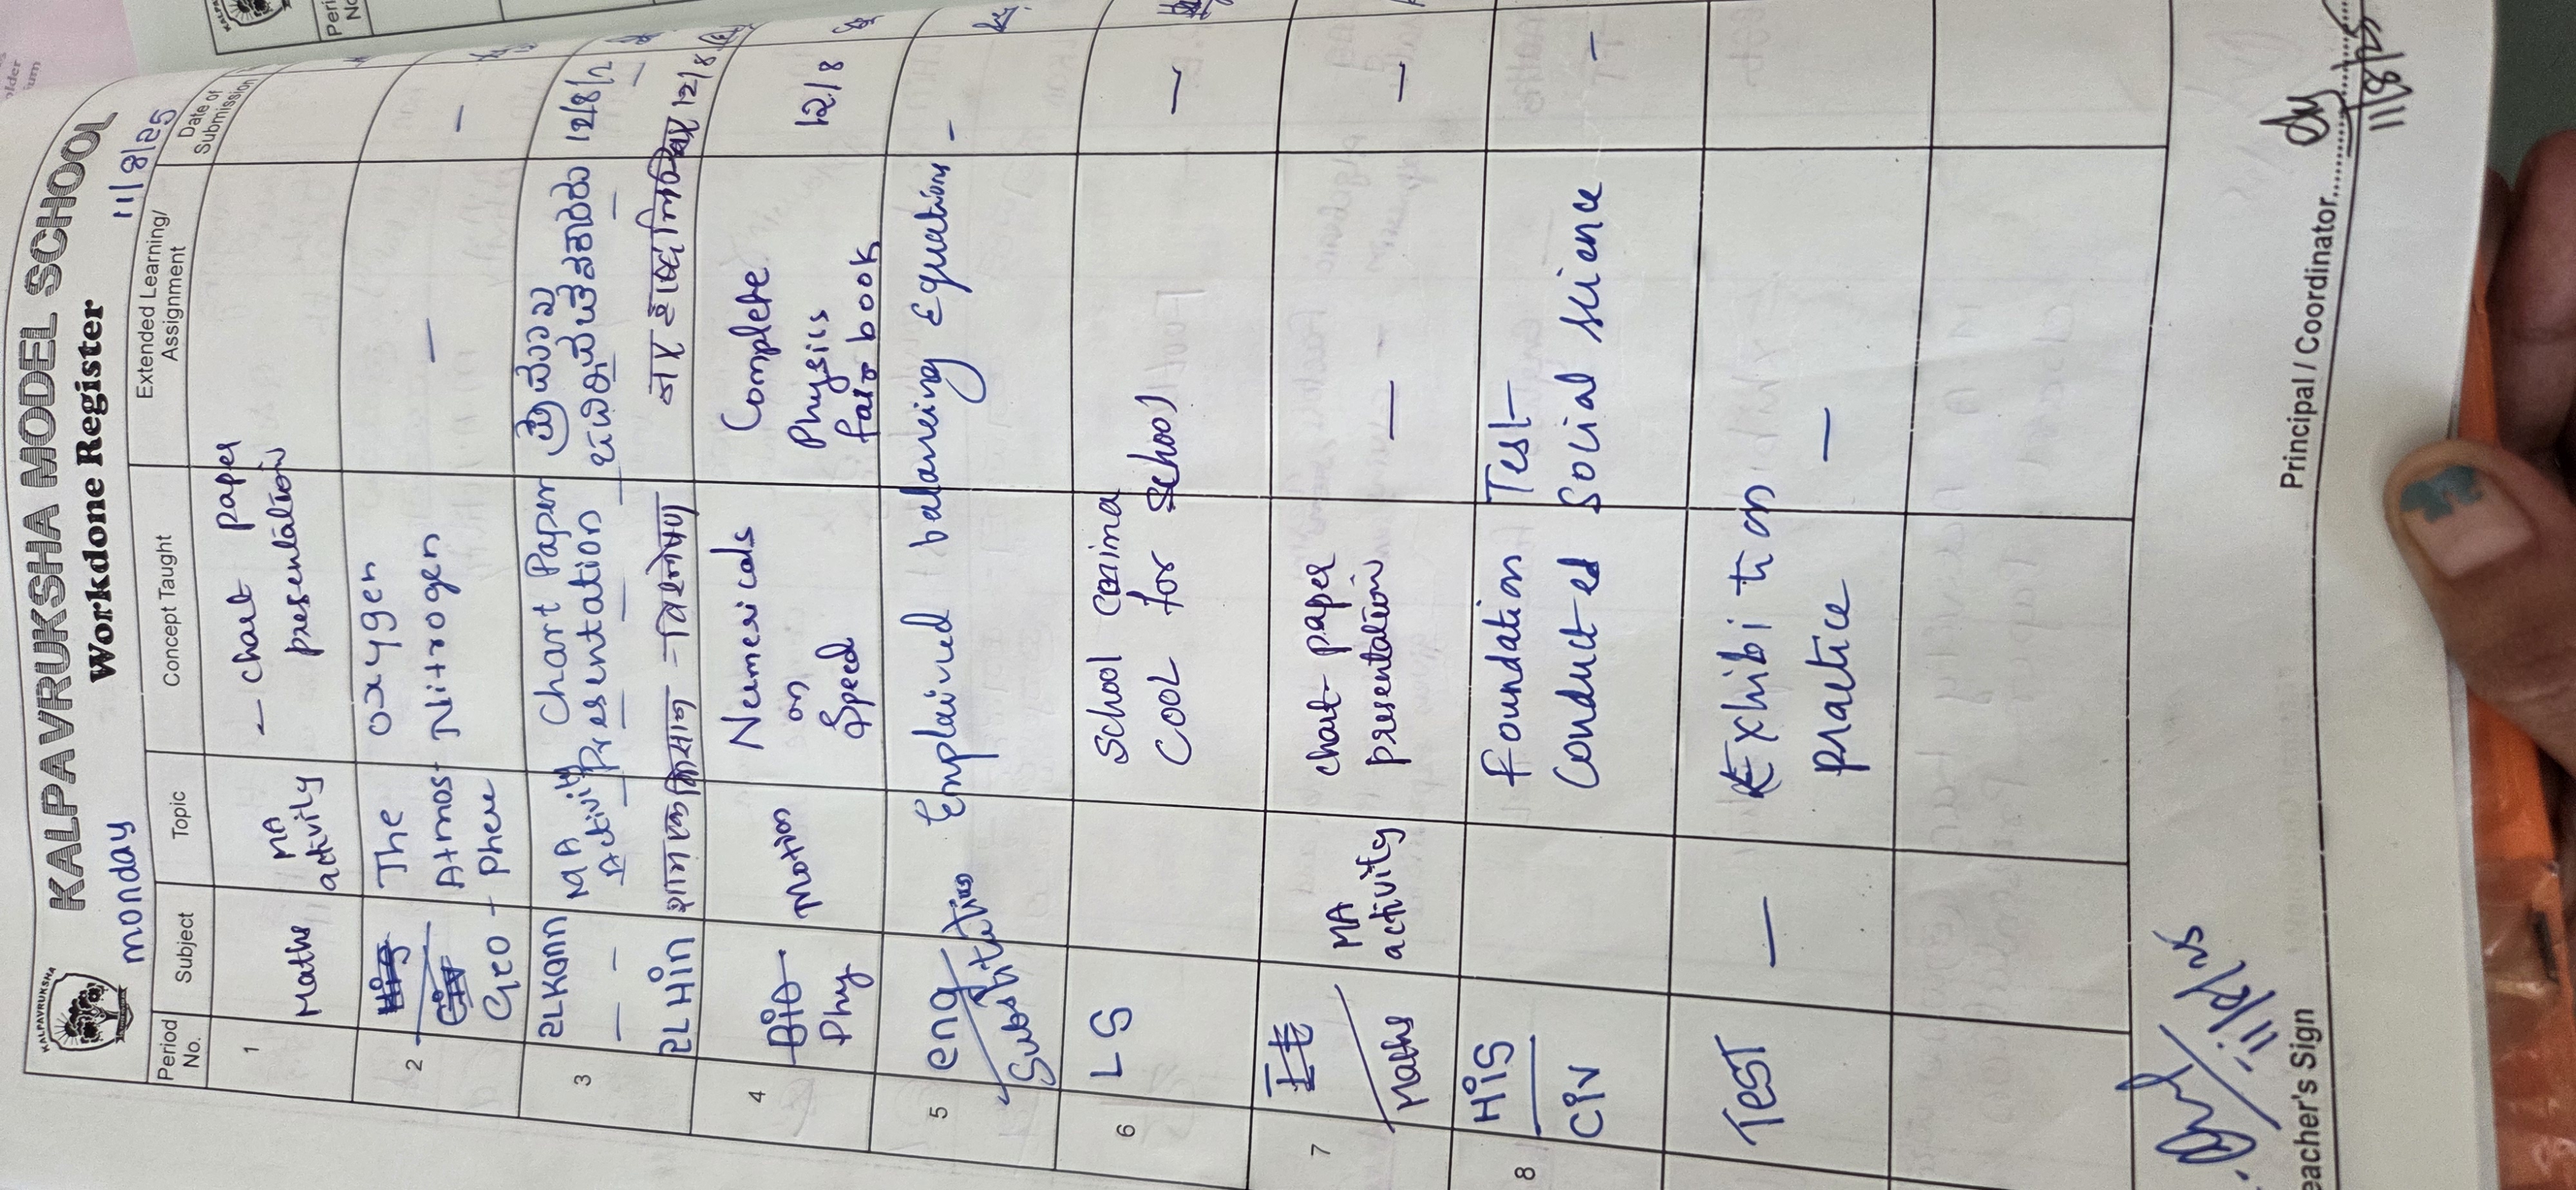 KALPAVRUKSHA
KALPAVRUKSHA MODEL SCHOOL
Workdone Register
monday
11/8/25
Period No.
Subject
Topic
Concept Taught
Extended Learning/ Assignment
Date of Submission
1
Maths
MA
activity
- chart paper
presentation
2
Geo -
The
Atmos-
phere
Oxygen
Nitrogen
-
-
3
2LKann
MA
Activity
Chart Paper
Presentation
12/8/2
2LHin
शामक किसान - विश्लेषण
12/8
4
Bio
Phy
Motion
Numericals
on
Speed
Complete
Physics
fair book
12/8
5
eng
Substitution
Emplained balancing Equations -
6
LS
School
COOL for school
-
7
Maths
MA
activity
chart paper
presentation
-
-
8
HiS
Civ
Foundation Test
Conducted Social science
-
TEST
-
Exhibition
practice
-
11/8/25
eacher's Sign
Principal / Coordinator
11/8/25